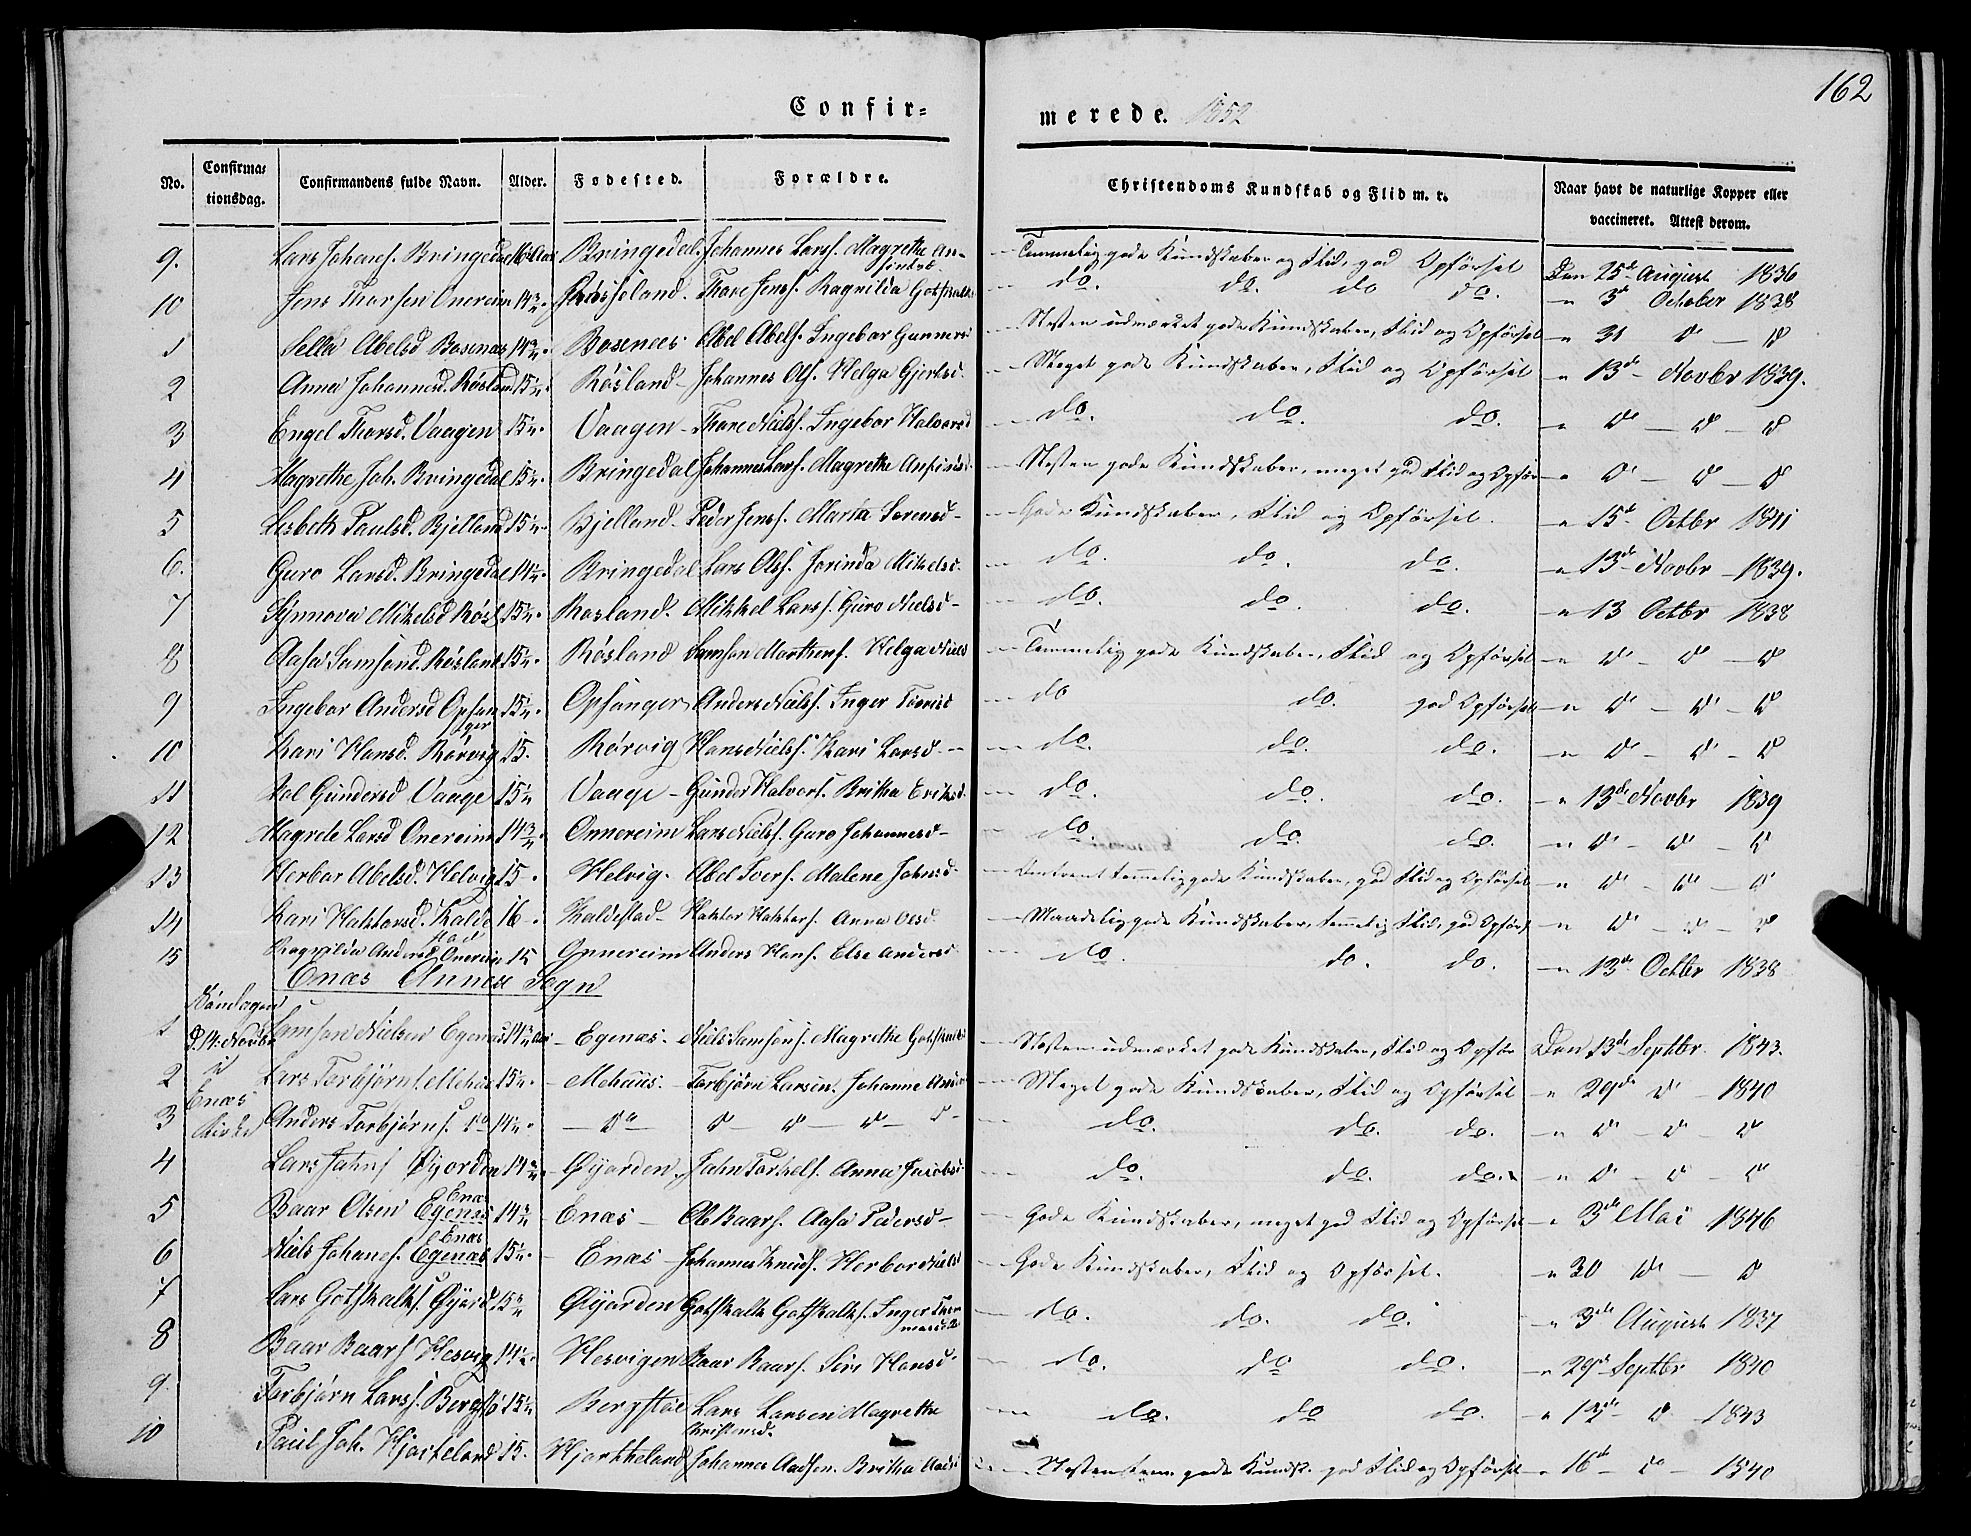 162
Confir= merede. 1852
No. Confirmationsdag. Confirmandens fulde Navn. Alder. Fødested. Forældre. Christendoms Kundskab og Flid m. v. Naar havt de naturlige Kopper eller vaccineret. Attest derom.
9. Lars Johans. Bringedal Bringedal. Johannes Larss. Magrethe Anfindsd. Temmelig gode Kundskaber og Flid, god Opførsel Den 25de August 1836
10 Jens Thorsen Onereim 14 3/4 Thore Jenss. Ragnilda Gotskalks do. do. do do. " 3de October 1838
1 Sella Abelsd Bosenæs 14 3/4 Bosenees Abel Abels. Ingebor Gunnersd Næsten udmærket gode Kundskaber, Flid og Opførsel " 31 d — d
2 Anna Johannesd. Røsland 15 1/4 Røsland Johannes Ols. Helga Gjertsd. Meget gode Kundskaber, Flid og Opførsel " 13de Novbr 1839.
3 Engel Thorsd. Vaagen 15 1/4 Vaagen Thore Niels. Ingebor Halvorsd do. do. do. " d — d — d
4 Magrethe Joh. Bringedal 15 1/4 Bringedal Johannes Lars. Magrethe Anfinds Næsten gode Kundskaber, meget god Flid og Opfør " d — d — d
5 Lisbeth Paulsd. Bjelland 15 1/4 Bjelland Peder Jenss. Maria Sorensd Gode Kundskaber, Flid og Opførsel. " 15de Octbr 1841
6. Guro Larsd. Bringedal 14 1/2 Bringedal Lars Ols. Jorinda Mikelsd. do. do. do. " 13de Novbr 1839.
7 Synnova Mikelsd Røsl 15 1/2 Rosland. Mikkel Larss. Guro Nielsd do. do. do. " 13 Octbr 1838
8 Aasa Samsond. Røsland 15 1/4 Røsland Samson Mortens. Helga Niels Temmelig gode Kundskaber, Flid og Opførsel " d — d — d
9 Ingebor Andersd Opsanger 15 1/4 Opsanger Anders Niels. Inger do do. god Opførsel " d — d — d
10 Kari Hansd. Rørvig 15. Rørvig Hans Nielss. Kari Larsd. do. do. do. " d — d — d
11 Gundersd Vaage 15 1/4 Vaage Gunder Halvors. Britha Eriksd. do. do. do. " 13de Novbr 1839
12 Magrete Larsd Onereim 14 3/4 Onnereim Lars Niels. Guro Johannesd do. do. do. " d — d — d
13 Herbor Abelsd. Helvig 15 Helvig. Abel Ivers. Malene Johnsd. temmelig gode Kundskaber, god Flid og Opførsel " d — d — d
14 Kari Hakkorsd. Kaldestad 16 Kaldestad Anna Olsd Maadelig gode Kundskaber, temmelig Flid, god Opførs " d — d — d
15 Ragnilda Andersd Onereim 15 Onnereim Anders Hans. Else Andersd do. do. do. " 13de Octbr 1838
Enæs Annex Sogn
Søndagen d. 14. Novbr i Enæs Kirke
1 Samson Nielsen Egenæs 14 3/4 Egenæs. Niels Samsons. Magrethe Gotskalks Næsten udmærket gode Kundskaber, Flid og Opfør Den 13de Septbr. 1843.
2 Lars Torbjørns Mehus 15 1/4 Mehuus. Torbjørn Larsen. Johanne Meget gode Kundskaber, Flid og Opførsel " 29de d 1840
3 Anders Torbjørns. do 14 1/4 do d — d — d — d do. do. do. " d — d — d
4 Lars Jahns Øyorden 14 3/4 Øyarden Jahn Torkels. Anna Jacobsd do. do. do. " d — d — d
5 Baar Olsen Egenæs Enæs 14 3/4 Enæs Ol Baars. Aasa Pedersd Gode Kundskaber, meget god Flid og Opførsel " 3de Mai 1846
6 Niels Johanes. Egenæs Enæs 15 1/4 Enæs Johannes Knuds. Herbor Nielsd Gode Kundskaber, Flid og Opførsel. " 30 d — d
7 Lars Gotskalks. Øyard 15 3/4 Øyarden Gotskalk Gotskalks. Inger do. do. do. " 3de August 1837
8 Baar Baars Hesvig 14 1/2 Hesvigen Baar Baars. Siri Hansd. do. do do. " 29de Septbr 1840
9. Torbjørn Larss. Bergstø 15 1/4 Bergstøe Lars Larsen Magrethe Christensd. do. do do. " d 1843
10 Paul Joh. Hjorteland 15. Hjortheland Johannes Aadsen. Britha Næsten tem. gode Kundsk. god Flid og Opførsel " 16de d 1840